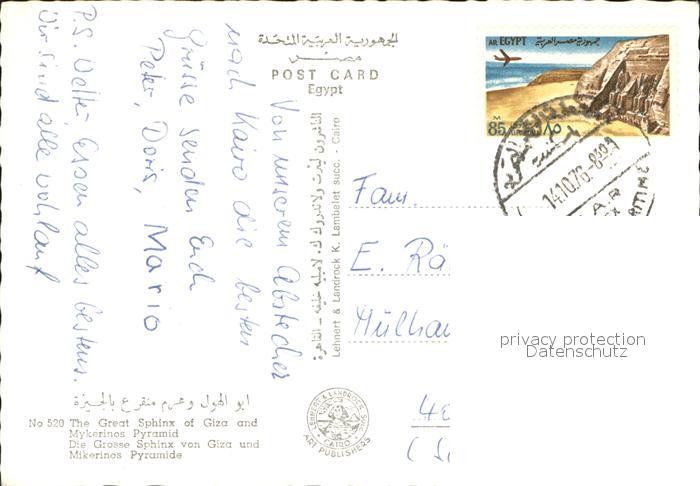 الجمهورية العربية المتحدة
مصر
POST CARD
Egypt
AR EGYPT جمهورية مصر العربية
M
85 ٨٥
14.10.76-8
MARITIME
Von unserem Abstecher
nach Kairo die besten
Grüsse senden Euch
Peter, Doris, Mario
P.S. Wetter, Essen alles bestens.
Wir sind alle wohlauf
Lehnert & Landrock K. Lambelet succ. - Cairo
Fam.
E. Rä
Mülhau
privacy protection
Datenschutz
ابو الهول وهرم منقرع بالجيزة
No 520 The Great Sphinx of Giza and
Mykerinos Pyramid
Die Grosse Sphinx von Giza und
Mikerinos Pyramide
LEHNERT & LANDROCK, SUCC.
CAIRO
ART PUBLISHERS